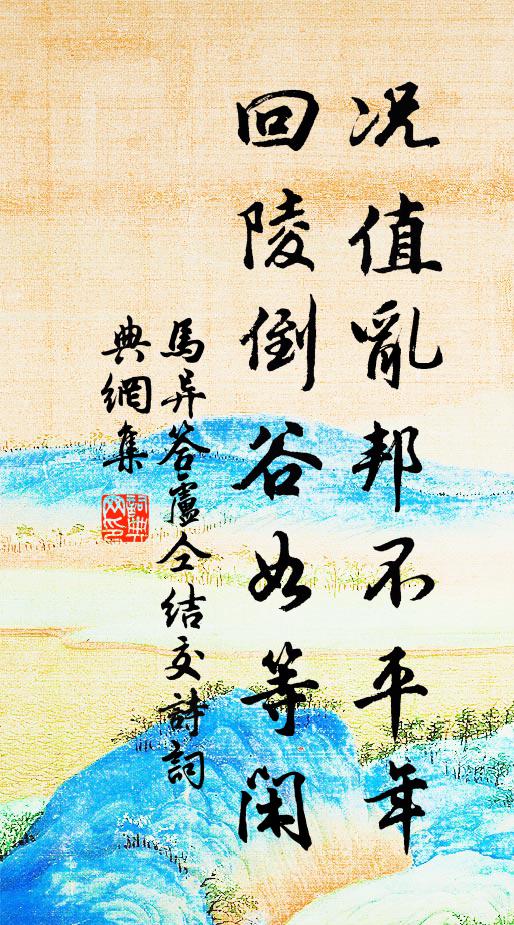 况值亂邦不平年
回陵倒谷如等閑
馬异答盧仝結交詩詞
典網集
詞典